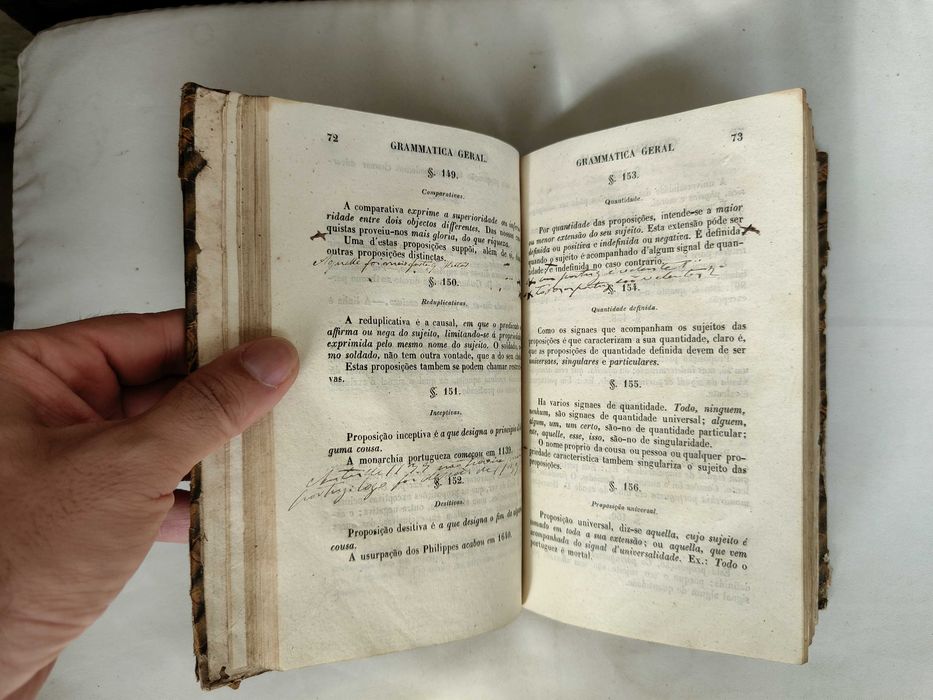 72
GRAMMATICA GERAL.
§. 149.
Comparativas.
A comparativa exprime a superioridade ou infer
ridade entre dois objectos differentes. Das nossas
quistas proveiu-nos mais gloria, do que riqueza.
Uma d'estas proposições suppõi, além de si,
outras proposições distinctas.
Aquelle foi mais forte
§. 150.
Reduplicativas.
A reduplicativa é a causal, em que o predicado
affirma ou nega do sujeito, limitando-se á proprie
exprimida pelo mesmo nome do sujeito. O soldado,
mo soldado, não tem outra vontade, que a do seu
Estas proposições tambem se podem chamar restri
vas.
§. 151.
Inceptivas.
Proposição inceptiva é a que designa o principio
guma cousa.
A monarchia portugueza começou em 1139.
§. 152.
Desitivas.
Proposição desitiva é a que designa o fim
cousa.
A usurpação dos Philippes acabou em 1640.
GRAMMATICA GERAL
73
§. 153.
Quantidade.
Por quantidade das proposições, intende-se a maior
ou menor extensão do seu sujeito. Esta extensão póde ser
definida ou positiva e indefinida ou negativa. É definida
quando o sujeito é acompanhado d'algum signal de quan-
tidade; e indefinida no caso contrario.
§. 154.
Quantidade definida.
Como os signaes que acompanham os sujeitos das
proposições é que caracterizam a sua quantidade, claro é,
que as proposições de quantidade definida devem de ser
universaes, singulares e particulares.
§. 155.
Ha varios signaes de quantidade. Todo, ninguem,
nenhum, são signaes de quantidade universal; alguem,
algum, um, um certo, são-no de quantidade particular;
este, aquelle, esse, isso, são-no de singularidade.
O nome proprio da cousa ou pessoa ou qualquer pro-
priedade caracteristica tambem singulariza o sujeito das
proposições.
§. 156.
Proposição universal.
Proposição universal, diz-se aquella, cujo sujeito é
tomado em toda a sua extensão; ou aquella, que vem
acompanhada do signal d'universalidade. Ex.: Todo o
portuguez é mortal.